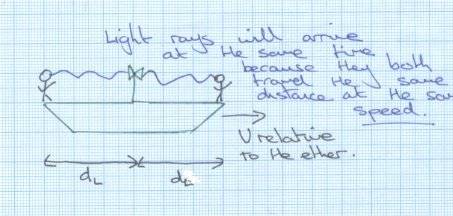 Light rays will arrive
at the same time
because they both
travel the same
distance at the sa
speed.
V relative
to the ether.
dL dL